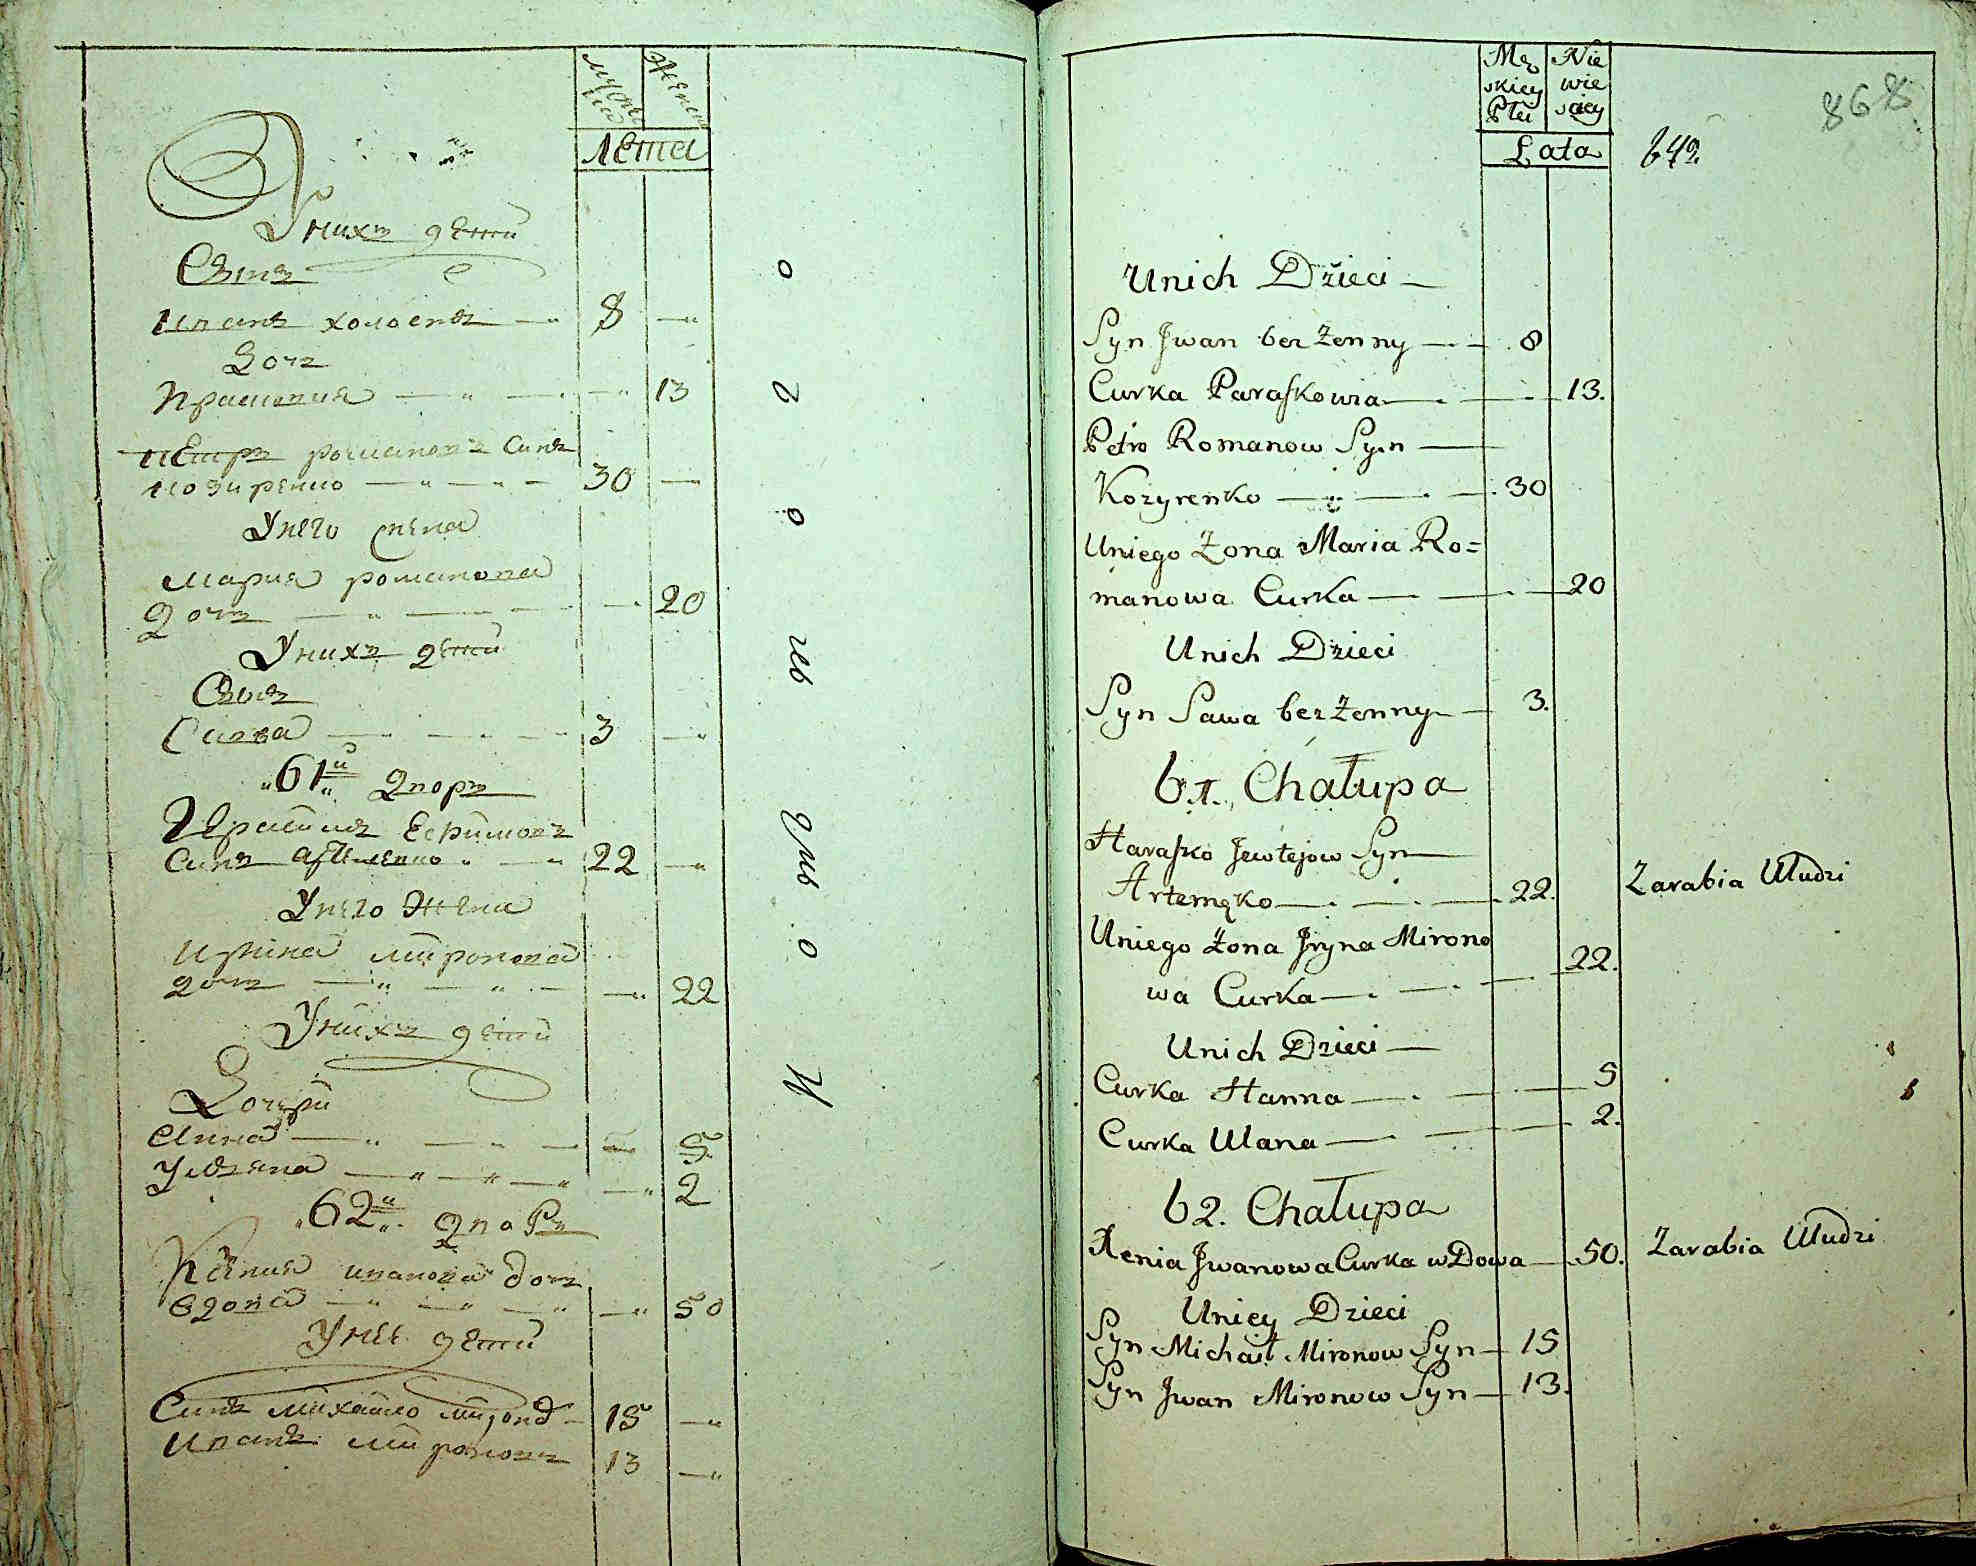 мужеска
женска
Лета
У нихъ дети
Сынъ
Иванъ холостъ 8
Дочь
13
Петръ романовъ Синъ
козиренко 30
У него жена
Мария романова
дочь 20
У нихъ дети
Сынъ
Савва 3
61й Дворъ
Синъ 22
У него Жена
Ирина миронова
дочь 22
У нихъ дети
Дочери
Анна 5
Уляна 2
62й Дворъ
Ксения иванова дочь
вдова 50
У нее дети
Синъ михайло миронов 15
Иванъ мироновъ 13
Mę Nie
skiey wie
Płci sciey
Lata
868
642
Unich Dzieci
Syn Jwan bez Żenny 8
Curka Paraskowia 13.
Petro Romanow Syn
Kozyreńko 30
Uniego Żona Maria Ro=
manowa Curka 20
Unich Dzieci
Syn Sawa bez Żenny 3.
61. Chałupa
Harasko Jewtejow Syn
Artemęko 22. Zarabia Uludzi
Uniego Żona Jryna Mirono
wa Curka 22.
Unich Dzieci
Curka Hanna 5
Curka Ulana 2.
62. Chałupa
Xenia Jwanowa Curka wDowa 50. Zarabia Uludzi
Uniey Dzieci
Syn Michaił Mironow Syn 15
Syn Jwan Mironow Syn 13.